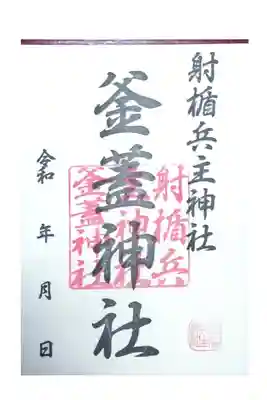 射楯兵主神社
釜蓋神社
令和 年 月 日
射楯兵
釜蓋神社